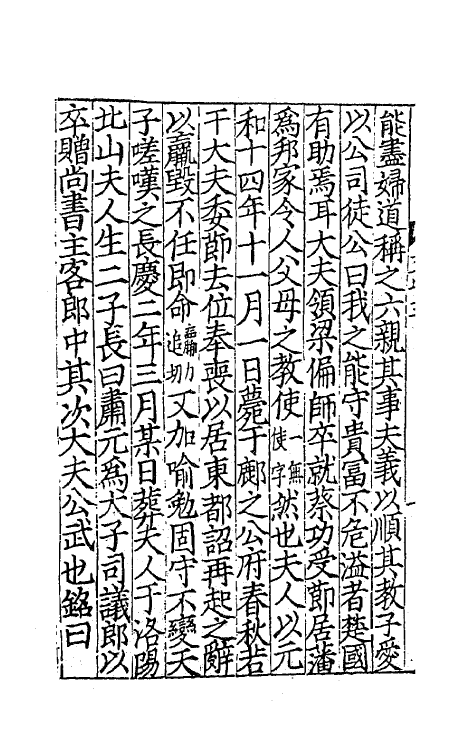 能盡婦道稱之六親其事夫義以順其教子愛
以公司徒公曰我之能守貴冨不危溢者楚國
有助焉耳大夫領梁偏師卒就蔡功受節居藩
爲邦家令人父母之教使一無使字然也夫人以元
和十四年十一月一日薨于鄜之公府春秋若
干大夫委節去位奉喪以居東都詔再起之辭
以羸毀不任即命羸力追切又加喻勉固守不變天
子嗟嘆之長慶二年三月某日葬夫人于洛陽
北山夫人生二子長曰肅元爲太子司議郎以
卒贈尚書主客郎中其次大夫公武也銘曰